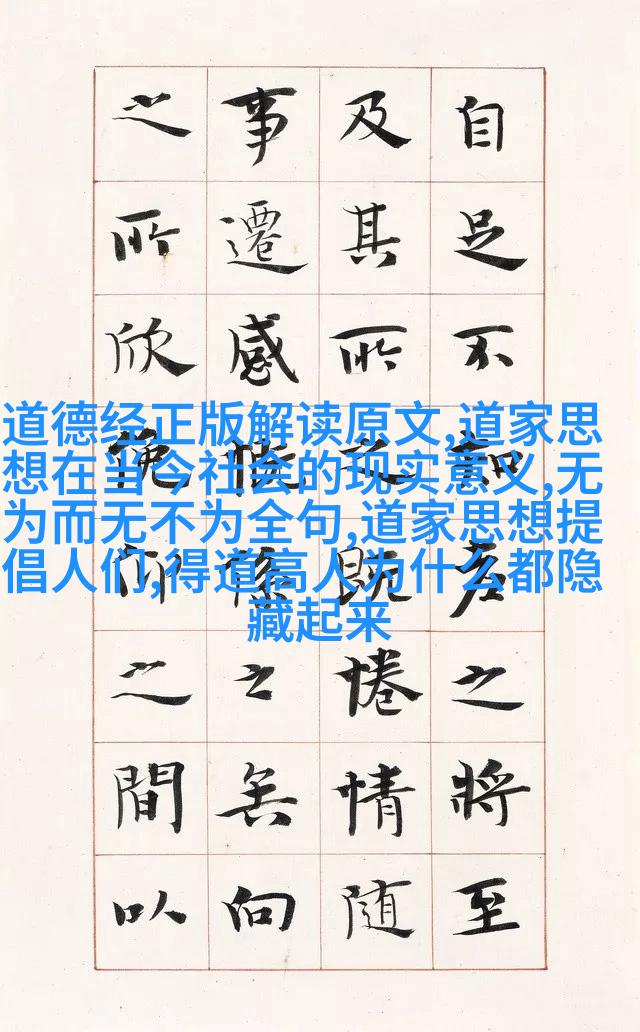 自足不知老之將至
及其所之既惓情隨
事遷感慨係之矣向
之所欣俛仰之間以
道德经正版解读原文,道家思
想在当今社会的现实意义,无
为而无不为全句,道家思想提
倡人们,得道高人为什么都隐
藏起来